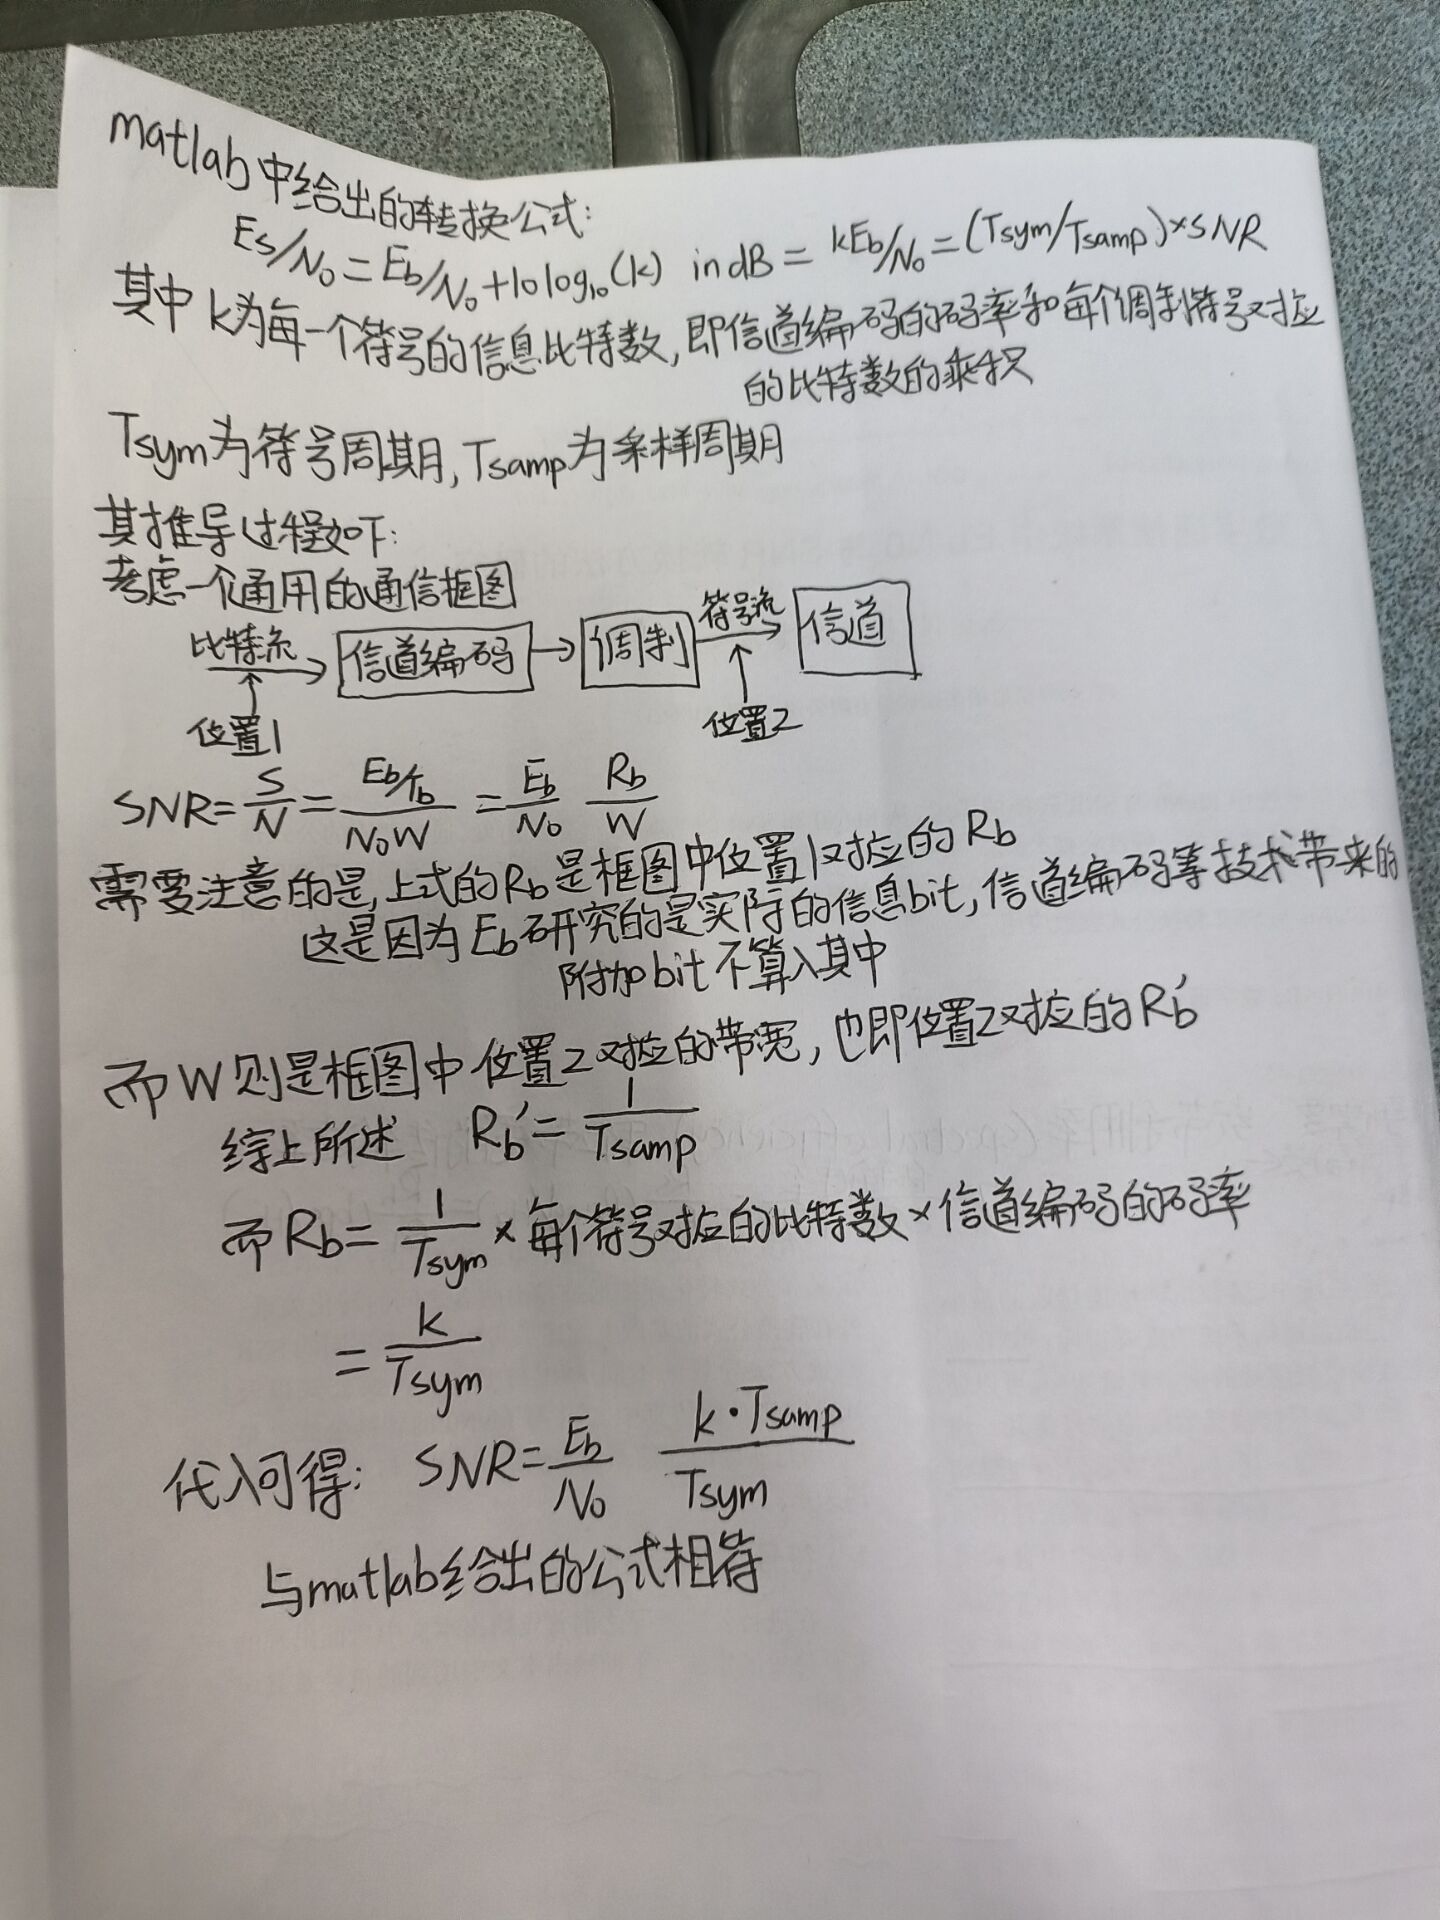 matlab中给出的转换公式:
Es/N₀=Eb/N₀+10log₁₀(k) in dB = kEb/N₀=(Tsym/Tsamp)×SNR
其中k为每一个符号的信息比特数,即信道编码的码率和每个调制符号对应
的比特数的乘积
Tsym为符号周期,Tsamp为采样周期
其推导过程如下:
考虑一个通用的通信框图
比特流 信道编码 调制 符号流 信道
位置1 位置2
SNR=S/N=(Eb/Tb)/(N₀W)=Eb/N₀ Rb/W
需要注意的是,上式的Rb是框图中位置1对应的Rb
这是因为Eb研究的是实际的信息bit,信道编码等技术带来的
附加bit不算入其中
而W则是框图中位置2对应的带宽,也即位置2对应的Rb′
综上所述 Rb′=1/Tsamp
而Rb=1/Tsym×每个符号对应的比特数×信道编码的码率
=k/Tsym
代入可得: SNR=Eb/N₀ k·Tsamp/Tsym
与matlab给出的公式相符